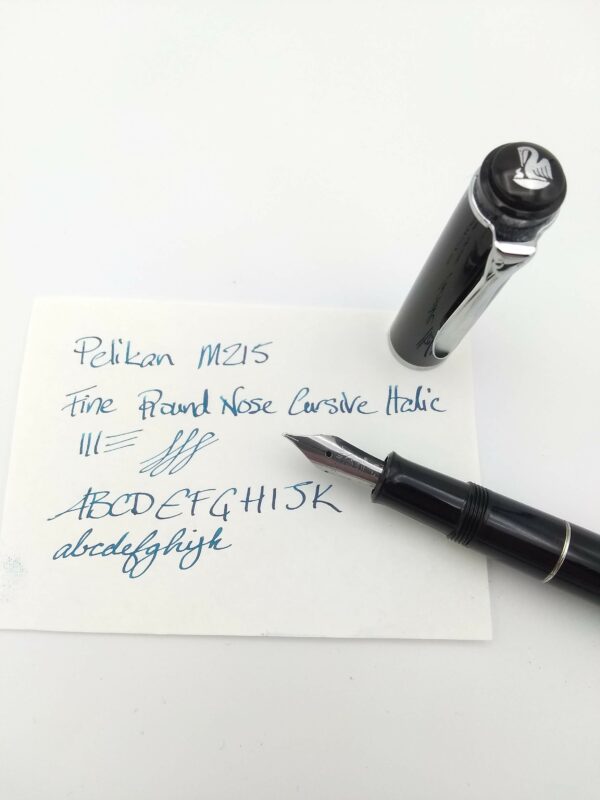 Pelikan M215
Fine Round Nose Cursive Italic
ABCDEFGHIJK
abcdefghijk